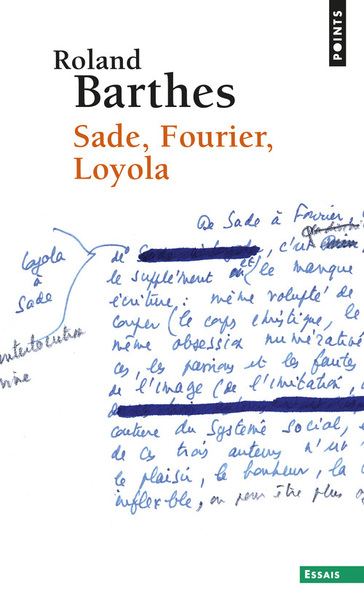 POINTS
Roland
Barthes
Sade, Fourier,
Loyola
De Sade à Fourier,
Loyola
à
Sade
de c'
le supplément le manque
écriture : même volupté de
couper (le corps christique, le
même obsession numérative
ces, les passions et les fautes
de l'image (de l'imitation,
couture du système social, e
de ces trois auteurs n'
le plaisir, le bonheur, la
inflexible, on peut être plus
ESSAIS